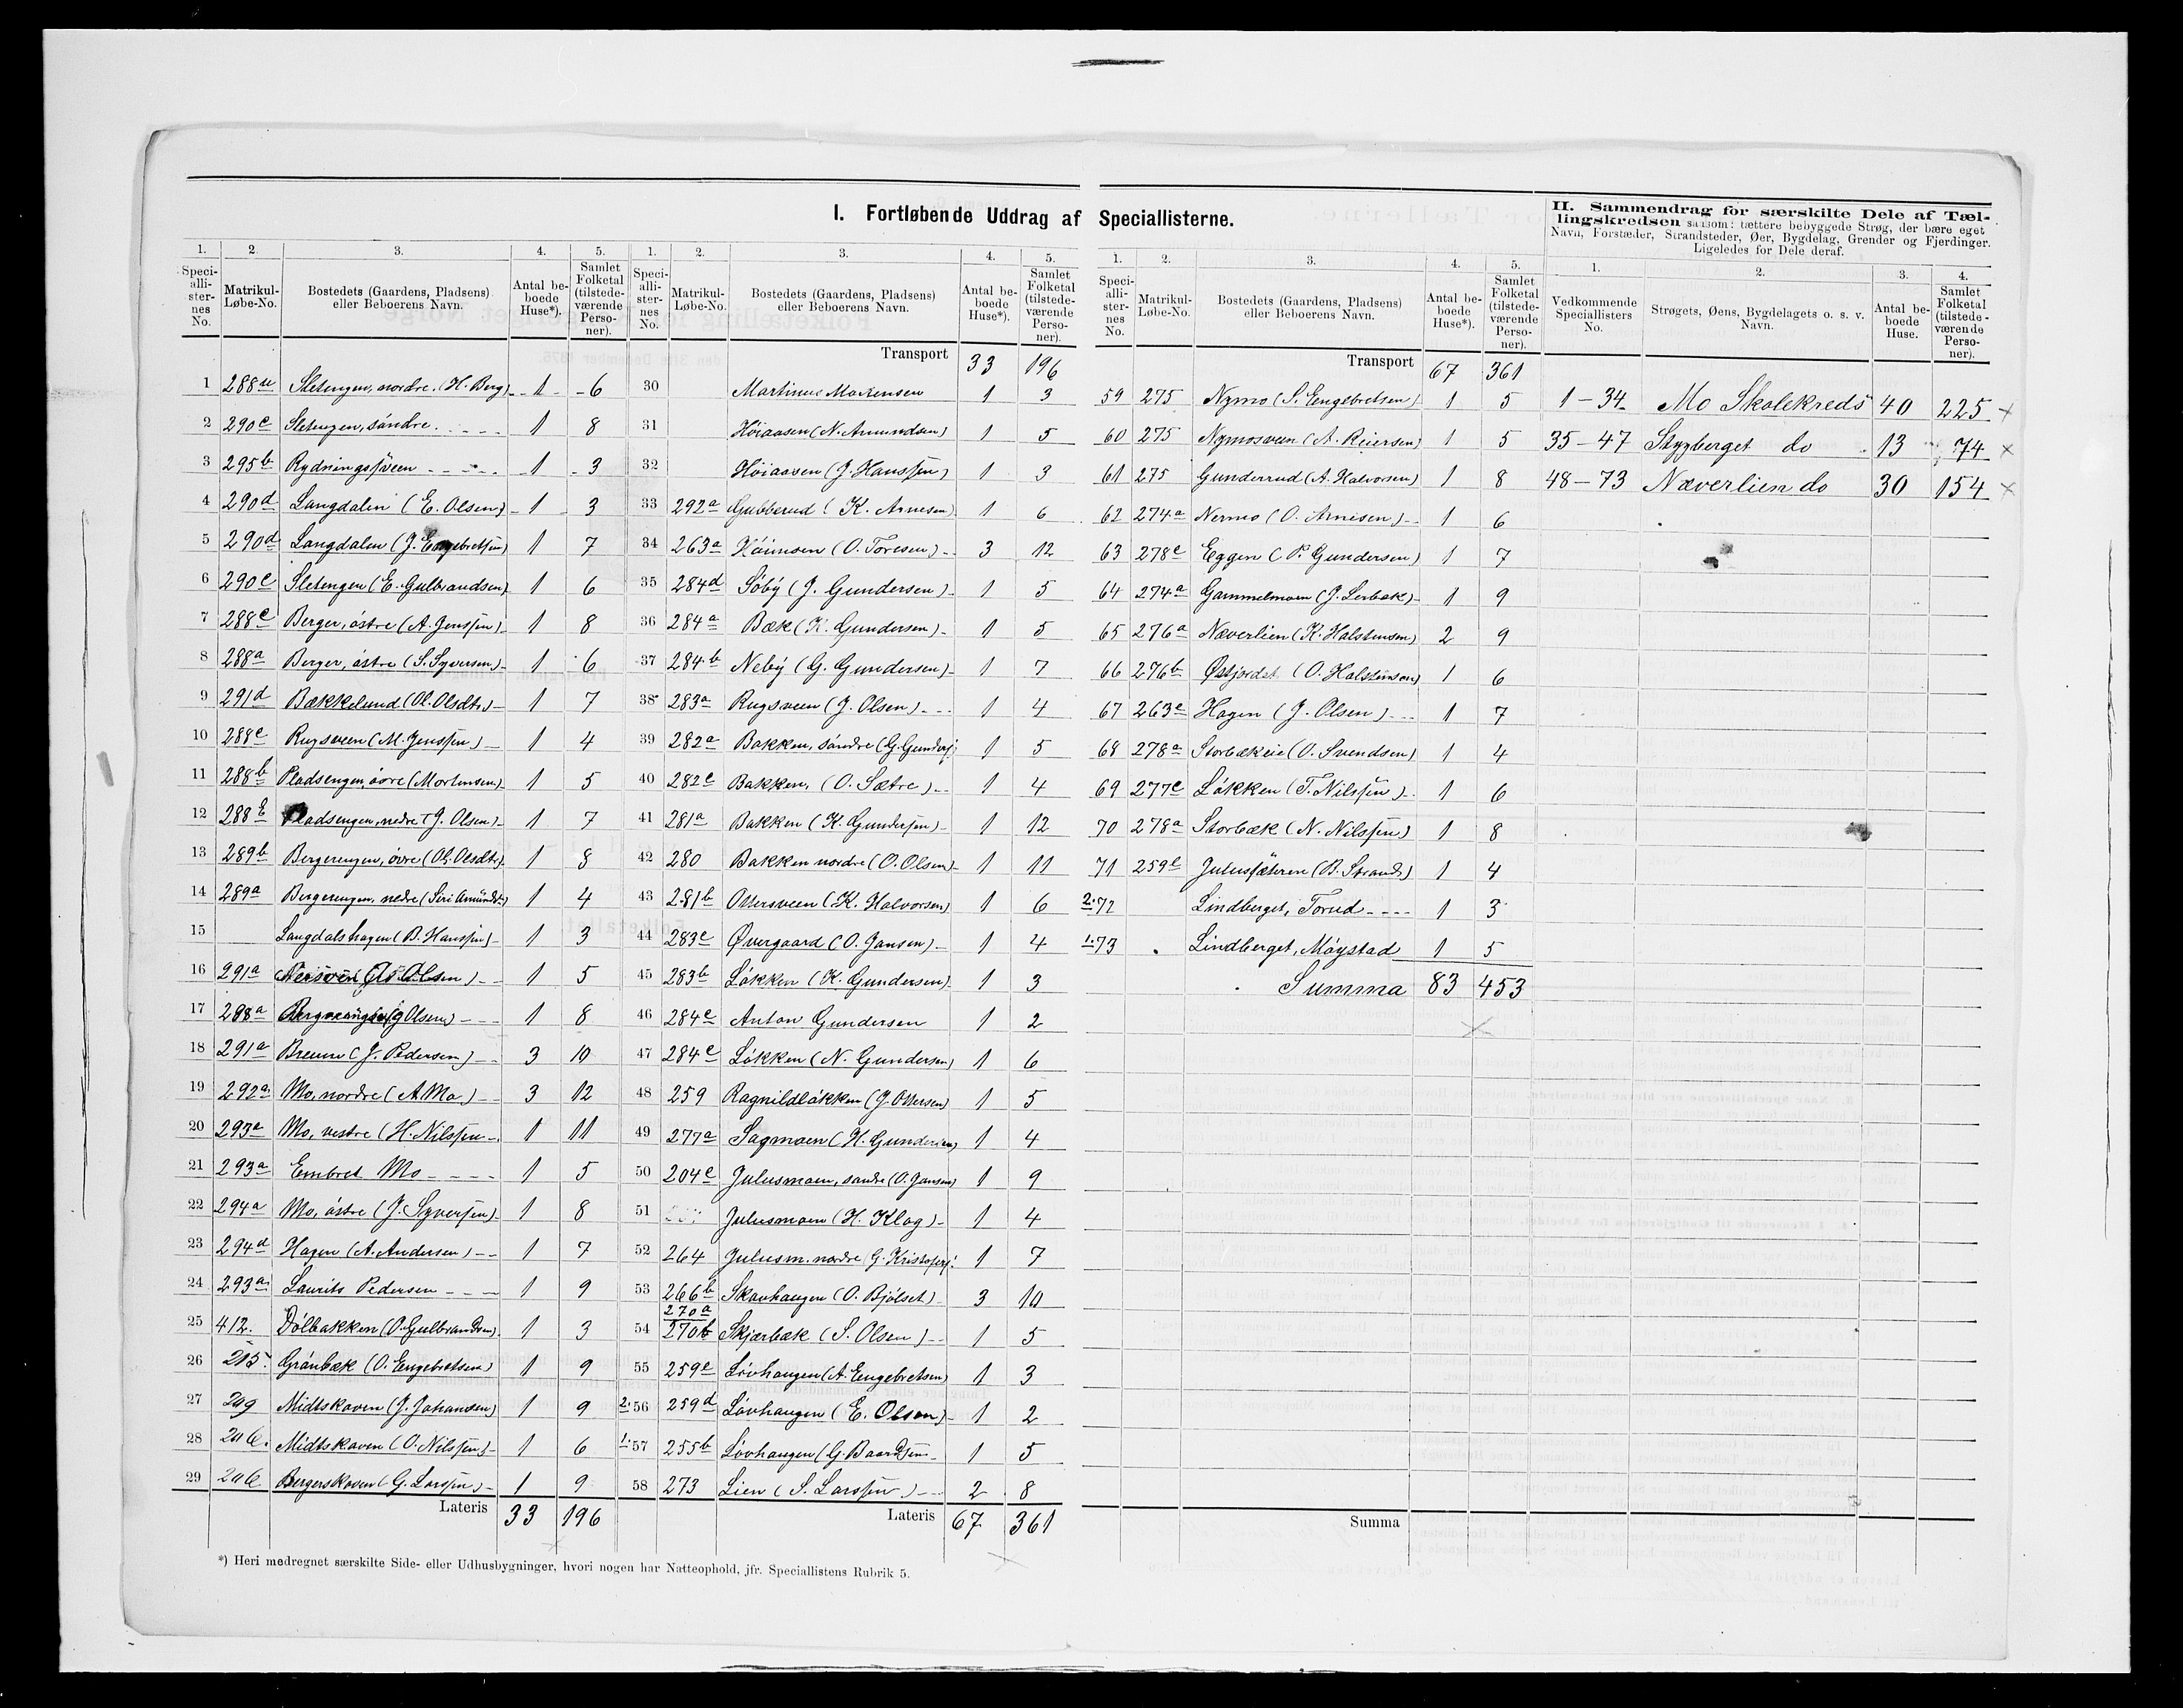 I. Fortløbende Uddrag af Speciallisterne.
1. 2. 3. 4. 5.
Speciallisternes No. Matrikul-Løbe-No. Bostedets (Gaardens, Pladsens) eller Beboerens Navn. Antal beboede Huse*). Samlet Folketal (tilstedeværende Personer).
1 288 Sletengen, nordre. (H. Berg) 1 6
2 290c Sletengen, søndre. 1 8
3 295b Rydningssveen 1 3
4 290d Langdalen (E. Olsen) 1 3
5 290d Langdalen (J. Engebretsen) 1 7
6 290c Sletengen (E. Gulbrandsen) 1 6
7 288c Berger, østre (A. Jenssen) 1 8
8 288a Berger, østre (S. Syversen) 1 6
9 291d Bækkelund (Ol. Olsdtr.) 1 7
10 288c Rugsveen (M. Jenssen) 1 4
11 288b Pladsengen, øvre (Mortensen) 1 5
12 288 Pladsengen, nedre (J. Olsen) 1 7
13 289b Bergerengen, øvre (Ol. Olsdtr.) 1 8
14 289a Bergerengen, nedre (Siri Amundsdtr) 1 4
15 Langdalshagen (B. Hanssen) 1 3
16 291a Nersveen Olsen) 1 5
17 288a Bergerengen (J Olsen) 1 8
18 291a Brenne (J. Pedersen) 3 10
19 292a Mo, nordre (A Mo) 3 12
20 293a Mo, vestre (H. Nilssen 1 11
21 293a Embret Mo 1 5
22 294a Mo, østre (J. Syversen) 1 8
23 294d Hagen (A. Andersen) 1 7
24 293a Laurits Pedersen 1 9
25 412. Dølbakken (O. Gulbrandsen) 1 3
26 215. Grønbæk (O. Engebretsen) 1 9
27 Midtskoven (J. Johansen) 1 9
28 Midtskoven (O. Nilssen) 1 6
29 Bergerskoven (G. Larssen) 1 9
Lateris 33 196
1. 2. 3. 4. 5.
Speciallisternes No. Matrikul-Løbe-No. Bostedets (Gaardens, Pladsens) eller Beboerens Navn. Antal beboede Huse*). Samlet Folketal (tilstedeværende Personer).
Transport 33 196
30 Martinus Mortensen 1 3
31 Høiaasen (N. Amundsen) 1 5
32 Høiaasen (J. Hanssen) 1 3
33 292a Gubberud (K. Arnesen) 1 6
34 263a (O. Toresen) 3 12
35 284d Søby (J. Gundersen) 1 5
36 284a Bæk (K. Gundersen) 1 5
37 284b Neby (G. Gundersen) 1 7
38 283a Rugsveen (J. Olsen) 1 4
39 282a Bakken, søndre (G. Gunders: 1 5
40 282c Bakken, (O. Sætre) 1 4
41 281a Bakken (K. Gundersen) 1 12
42 280 Bakken nordre (O. Olsen) 1 11
43 281b Ottersveen (K. Halvorsen) 1 6
44 283c Øvergaard (O. Jansen) 1 4
45 283b Løkken (K. Gundersen) 1 3
46 284c Anton Gundersen 1 2
47 284c Løkken (N. Gundersen) 1 6
48 259 Ragnildløkken (J. Ottersen) 1 5
49 277a Sagmoen (H. Gundersen) 1 4
50 204c Julusmoen, søndre (O. Jansen) 1 9
51 Julusmoen (H. Klog) 1 4
52 264 Julusm. nordre G. Kristofers: 1 7
53 266b Skavhaugen (O. Bjølset) 3 10
270a
54 270b Skjærbæk (S. Olsen) 1 5
55 259c Løvhaugen (A. Engebretsen) 1 3
2. 56 259d Løvhaugen (E. Olsen) 1 2
1. 57 255b Løvhaugen (G. Baardsen 1 5
58 273 Lien (S. Larssen) 2 8
Lateris 67 361
1. 2. 3. 4. 5.
Speciallisternes No. Matrikul-Løbe-No. Bostedets (Gaardens, Pladsens) eller Beboerens Navn. Antal beboede Huse*). Samlet Folketal (tilstedeværende Personer).
Transport 67 361
59 275 Nymo (S. Engebretsen) 1 5
60 275 Nymosveen (A. Reiersen) 1 5
61 275 Gunderrud (A. Halvorsen) 1 8
62 274a Nermo (O. Arnesen) 1 6
63 278c Eggen (P. Gundersen) 1 7
64 274a Gammelmoen (J. Lerbæk) 1 9
65 276a Næverlien (K. Halstensen) 2 9
66 276b Østjordet (O. Halstensen) 1 6
67 263c Hagen (J. Olsen) 1 7
68 278a Storbækeie (O. Svendsen) 1 4
69 277c Løkken (T. Nilssen) 1 6
70 278a Storbæk (N. Nilssen) 1 8
71 259c Julussæteren (B. Strand) 1 4
2. 72 Lindberget, Torud 1 3
1. 73 Lindberget, Møystad 1 5
Summa 83 453
Summa
II. Sammendrag for særskilte Dele af Tællingskredsen saasom: tættere bebyggede Strøg, der bære eget Navn, Forstæder, Strandsteder, Øer, Bygdelag, Grender og Fjerdinger. Ligeledes for Dele deraf.
1. 2. 3. 4.
Vedkommende Speciallisters No. Strøgets, Øens, Bygdelagets o. s. v. Navn. Antal beboede Huse. Samlet Folketal (tilstedeværende Personer).
1-34 Mo Skolekreds 40 225 ×
35-47 Stygberget do 13 74 ×
48-73 Næverlien do 30 154 ×
*) Heri medregnet særskilte Side- eller Udhusbygninger, hvori nogen har Natteophold, jfr. Speciallistens Rubrik 5.